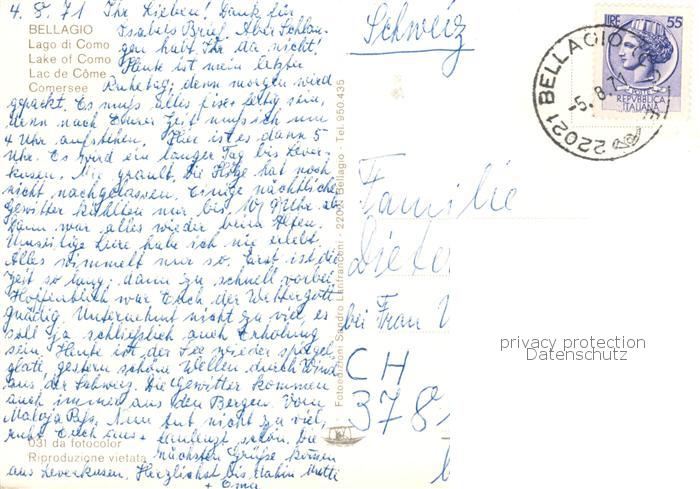 4.8.71 Ihr Lieben! Dank für
Isabels Brief. Aber Schlan-
gen habt Ihr da nicht!
BELLAGIO
Lago di Como
Lake of Como
Lac de Côme
Comersee
Heute ist mein letzter
Ruhetag, denn morgen wird
gepackt. Es muss alles fertig sein,
denn nach Eurer Zeit muss ich um
4 Uhr aufstehen. Hier ist es dann 5
Uhr. Es wird ein langer Tag bis Lever-
kusen. Mir grault. Die Hitze hat noch
nicht nachgelassen. Einige nächtliche
Gewitter kühlten nur bis 9 Uhr ab.
Dann war alles wieder beim Alten.
Tiere habe ich nie erlebt.
Alles wimmelt nur so. Erst ist die
Zeit so lang, dann zu schnell vorbei.
Hoffentlich war Euch der Wettergott
gnädig. Unternehmt nicht zu viel, es
soll ja schliesslich auch Erholung
sein. Heute ist der See wieder spiegel-
glatt, gestern schöne Wellen durch Wind
aus der Schweiz. Die Gewitter kommen
auch immer aus den Bergen. Vom
Maloja Pass. Nun tut nicht zu viel,
ruht Euch aus + faulenzt schön. Die
031 da fotocolor
nächsten Grüsse kommen
Riproduzione vietata
aus Leverkusen. Herzlichst bis dahin Mutti
+ Oma
Fotoedizioni Sandro Lanfranconi - 22021 Bellagio - Tel. 950.435
Schweiz
LIRE 55
REPVBBLICA
ITALIANA
22021 BELLAGIO
-5.8.71
Familie
bei Frau
CH
378
privacy protection
Datenschutz